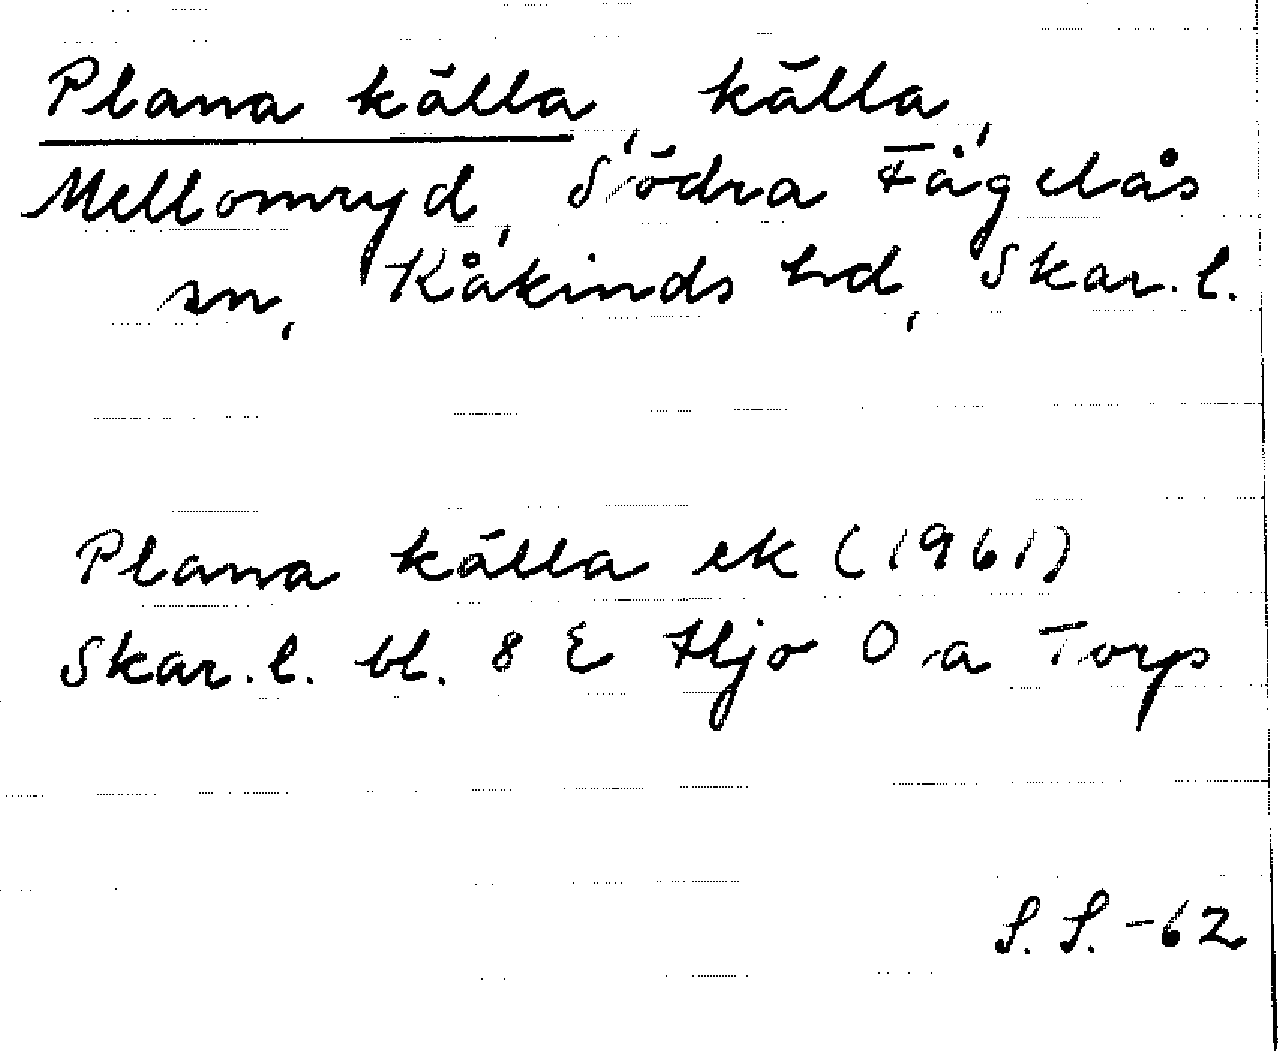 Plana källa, källa,
Mellomryd, Södra Fågelås
sn, Kåkinds hd, Skar. l.
Plana källa ek (1961)
Skar. l. bl. 8 E Hjo 0 a Torp
S. S. -62